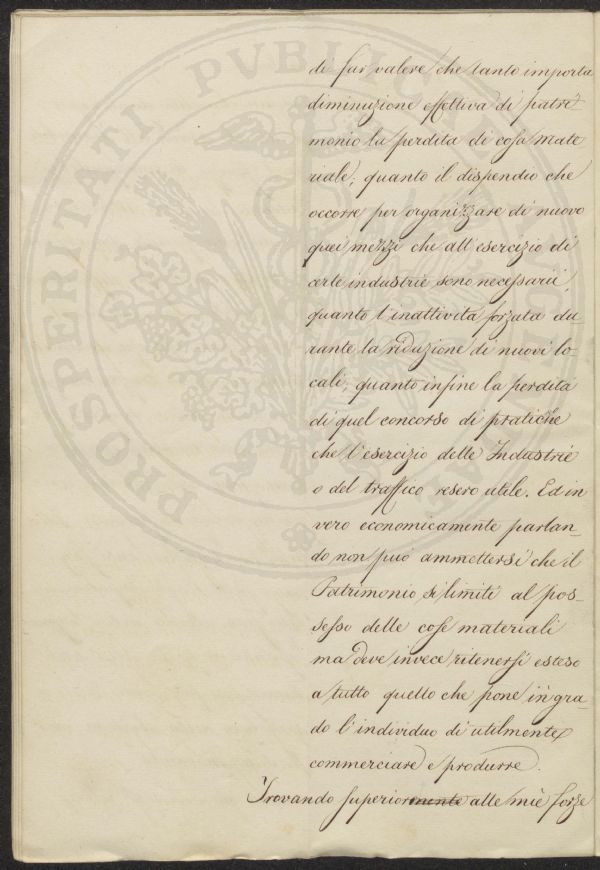 di far valere che tanto importa
diminuzione effettiva di patri-
monio la perdita di cosa mate
riale; quanto il dispendio che
occorre per organizzare di nuovo
quei mezzi che all'esercizio di
certe industrie sono necessarii,
quanto l'inattività forzata du-
rante la riduzione di nuovi lo-
cali; quanto infine la perdita
di quel concorso di pratiche
che l'esercizio delle Industrie
o del traffico resero utile. Ed in
vero economicamente parlan-
do non può ammettersi che il
Patrimonio si limiti al pos-
sesso delle cose materiali
ma deve invece ritenersi esteso
a tutto quello che pone in gra-
do l'individuo di utilmente
commerciare e produrre.
Trovando superiormente alle mie forze
PROSPERITATI PVBLICAE